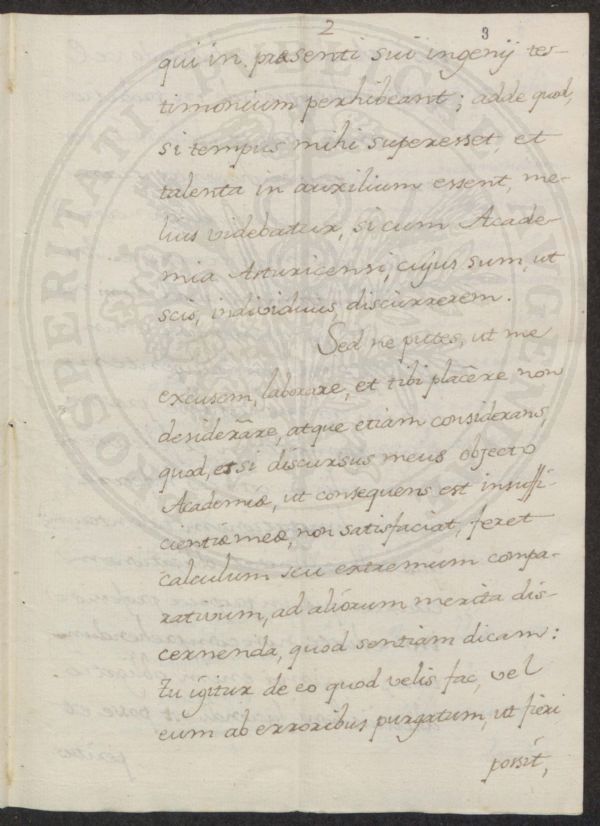 2
3
qui in præsenti sui ingenij tes-
timonium perhibeant; adde quod,
si tempus mihi superesset, et
talenta in auxilium essent, me-
lius videbatur, si cum Acade-
mia Asturicensi, cujus sum, ut
scis, individuus, discurrerem.
Sed ne putes, ut me
excusem, laborare, et tibi placere non
desiderare, atque etiam considerans,
quod, et si discursus meus objecto
Academiæ, ut consequens est insuffi-
cientiæ meæ, non satisfaciat, feret
calculum seu extremum compa-
rativum, ad aliorum merita dis-
cernenda, quod sentiam dicam:
tu igitur de eo quod velis fac, vel
eum ab erroribus purgatum, ut fieri
possit,